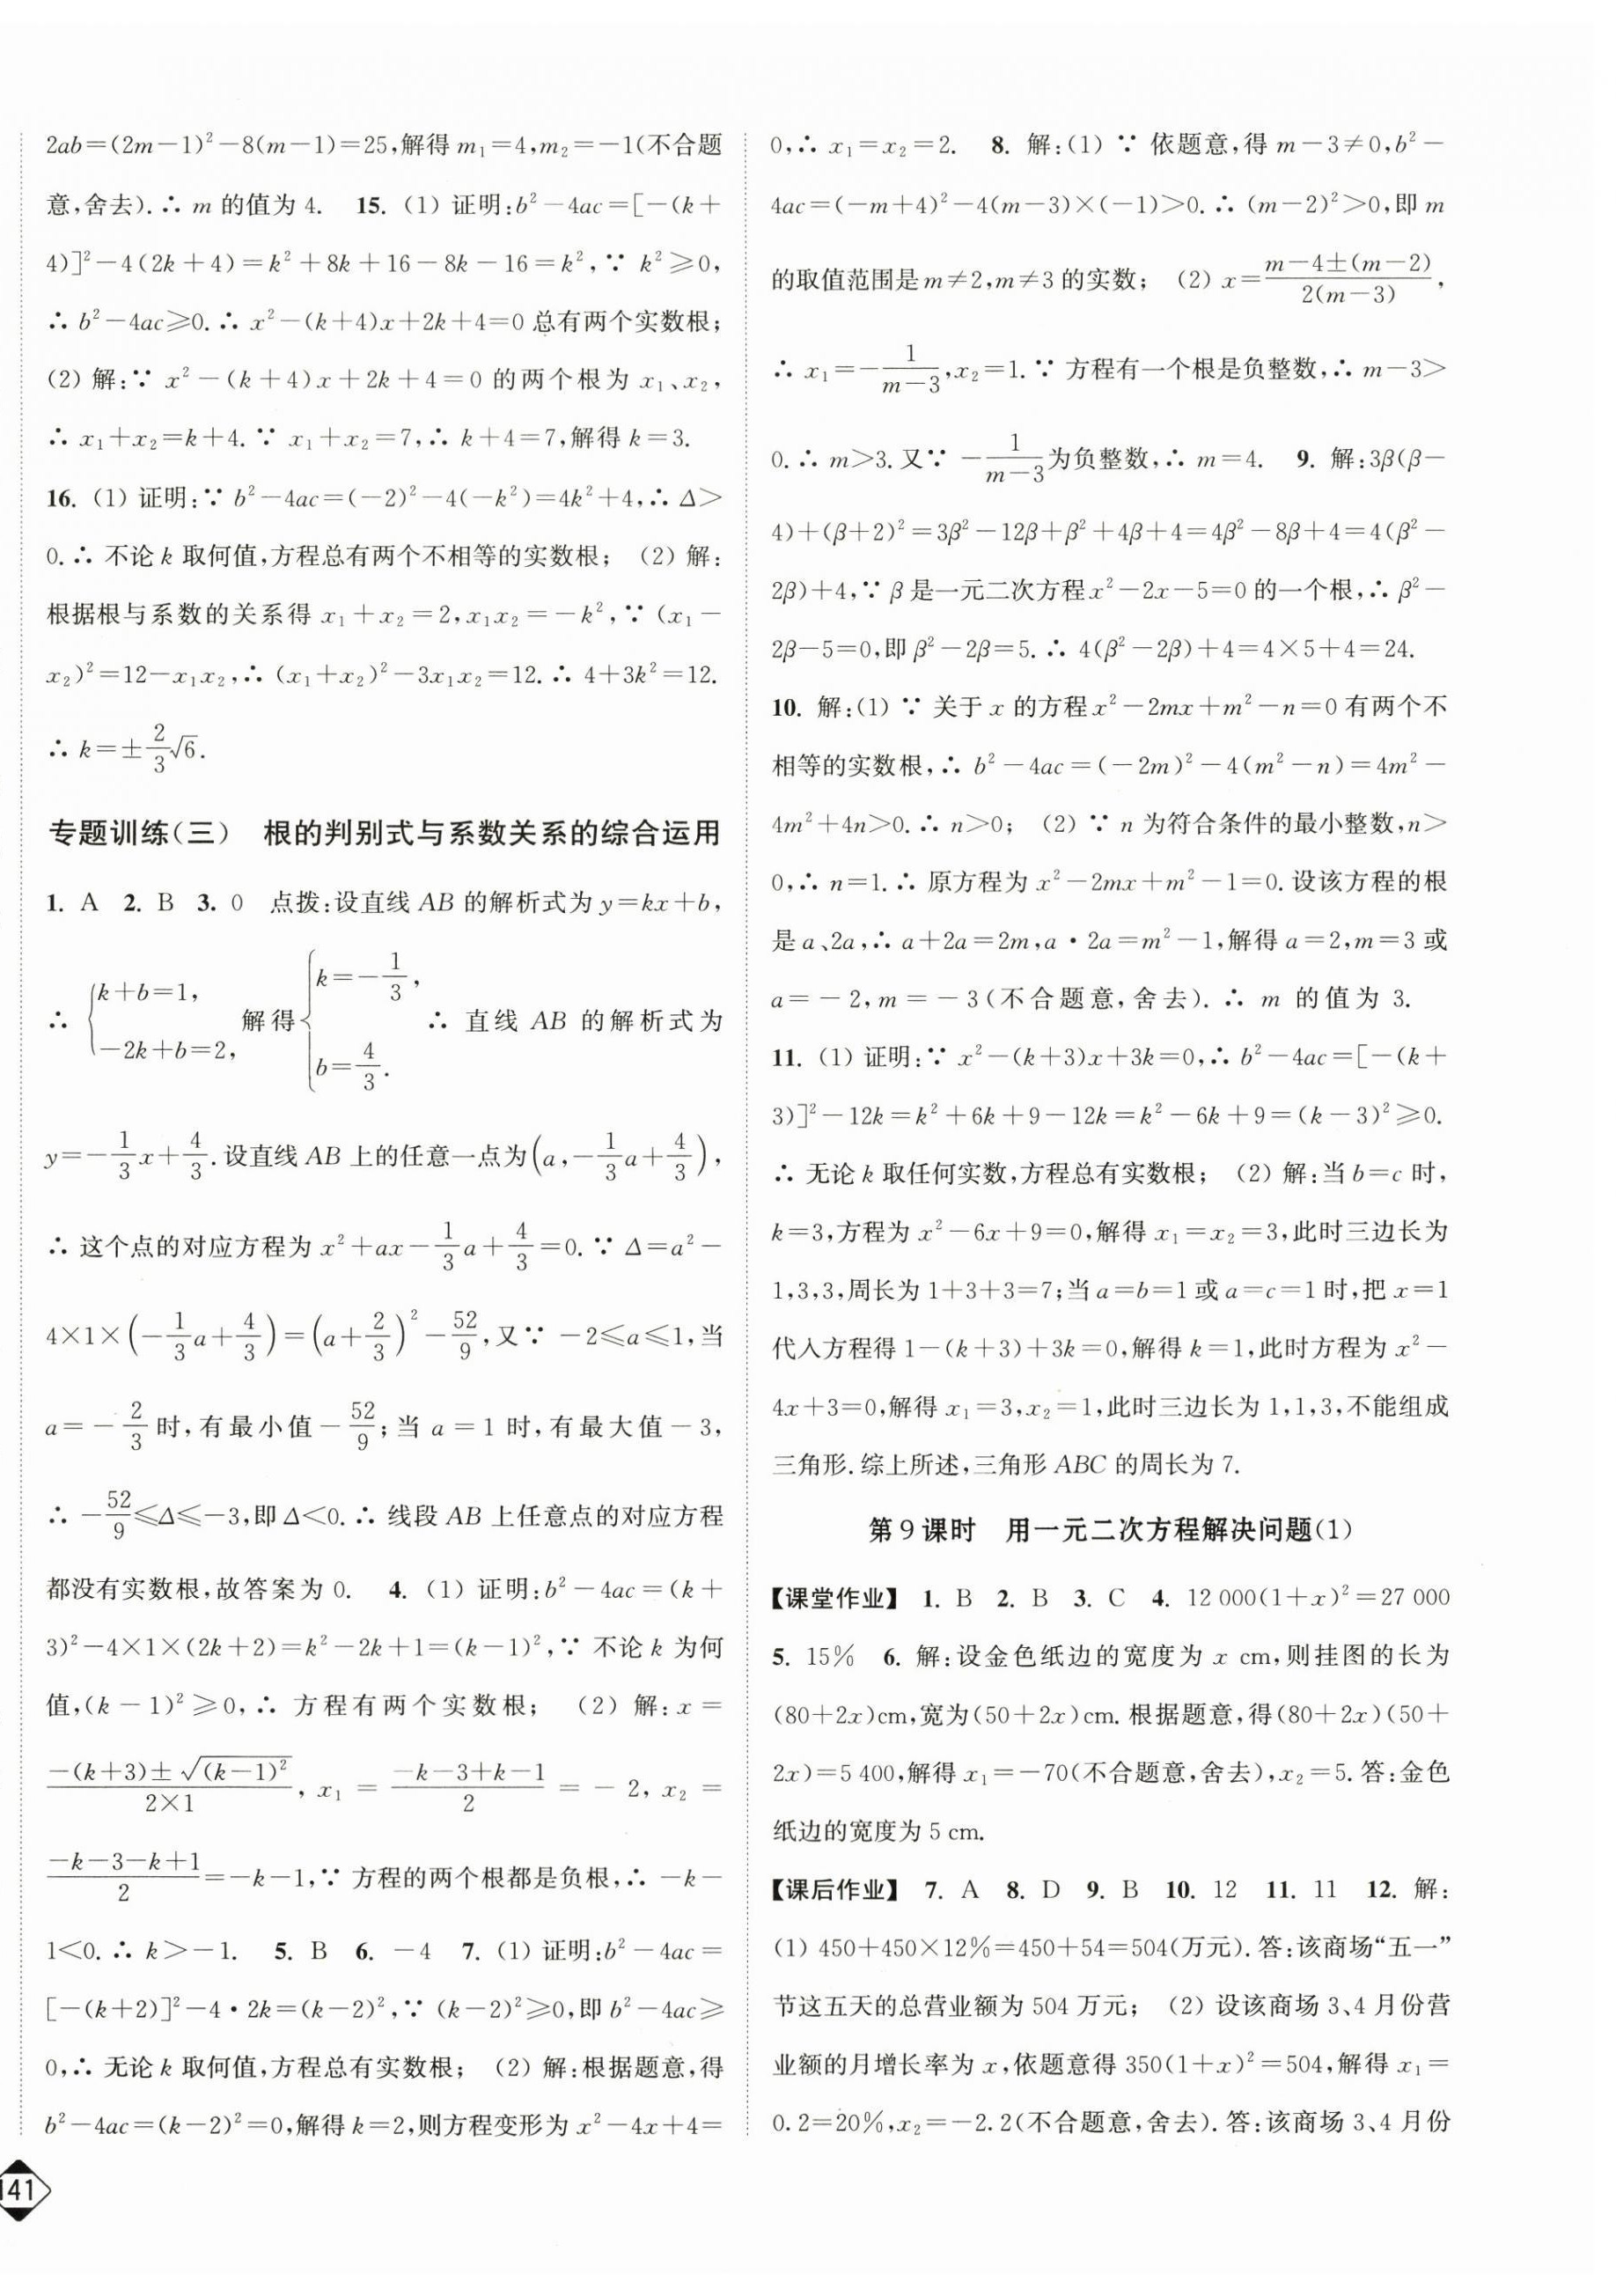 2ab=(2m-1)²-8(m-1)=25,解得 m₁=4,m₂=-1(不合题
意,舍去).∴ m 的值为 4. 15. (1) 证明:b²-4ac=[-(k+
4)]²-4(2k+4)=k²+8k+16-8k-16=k²,∵ k²≥0,
∴ b²-4ac≥0.∴ x²-(k+4)x+2k+4=0 总有两个实数根;
(2) 解:∵ x²-(k+4)x+2k+4=0 的两个根为 x₁、x₂,
∴ x₁+x₂=k+4.∵ x₁+x₂=7,∴ k+4=7,解得 k=3.
16. (1) 证明:∵ b²-4ac=(-2)²-4(-k²)=4k²+4,∴ Δ>
0.∴ 不论 k 取何值,方程总有两个不相等的实数根; (2) 解:
根据根与系数的关系得 x₁+x₂=2,x₁x₂=-k²,∵ (x₁-
x₂)²=12-x₁x₂,∴ (x₁+x₂)²-3x₁x₂=12.∴ 4+3k²=12.
∴ k=±2/3√6.
专题训练(三) 根的判别式与系数关系的综合运用
1. A 2. B 3. 0 点拨:设直线 AB 的解析式为 y=kx+b,
∴ {k+b=1, -2k+b=2, 解得{k=-1/3, b=4/3. ∴ 直线 AB 的解析式为
y=-1/3x+4/3.设直线 AB 上的任意一点为(a,-1/3a+4/3),
∴ 这个点的对应方程为 x²+ax-1/3a+4/3=0.∵ Δ=a²-
4×1×(-1/3a+4/3)=(a+2/3)²-52/9,又∵ -2≤a≤1,当
a=-2/3时,有最小值-52/9;当 a=1 时,有最大值-3,
∴ -52/9≤Δ≤-3,即 Δ<0.∴ 线段 AB 上任意点的对应方程
都没有实数根,故答案为 0. 4. (1) 证明:b²-4ac=(k+
3)²-4×1×(2k+2)=k²-2k+1=(k-1)²,∵ 不论 k 为何
值,(k-1)²≥0,∴ 方程有两个实数根; (2) 解:x=
(-(k+3)±√((k-1)²))/(2×1), x₁=(-k-3+k-1)/2=-2, x₂=
(-k-3-k+1)/2=-k-1,∵ 方程的两个根都是负根,∴ -k-
1<0.∴ k>-1. 5. B 6. -4 7. (1) 证明:b²-4ac=
[-(k+2)]²-4·2k=(k-2)²,∵ (k-2)²≥0,即 b²-4ac≥
0,∴ 无论 k 取何值,方程总有实数根; (2) 解:根据题意,得
b²-4ac=(k-2)²=0,解得 k=2,则方程变形为 x²-4x+4=
141
0,∴ x₁=x₂=2. 8. 解:(1) ∵ 依题意,得 m-3≠0,b²-
4ac=(-m+4)²-4(m-3)×(-1)>0.∴ (m-2)²>0,即 m
的取值范围是 m≠2,m≠3 的实数; (2) x=(m-4±(m-2))/(2(m-3)),
∴ x₁=-1/(m-3),x₂=1.∵ 方程有一个根是负整数,∴ m-3>
0.∴ m>3.又∵ -1/(m-3)为负整数,∴ m=4. 9. 解:3β(β-
4)+(β+2)²=3β²-12β+β²+4β+4=4β²-8β+4=4(β²-
2β)+4,∵ β 是一元二次方程 x²-2x-5=0 的一个根,∴ β²-
2β-5=0,即 β²-2β=5.∴ 4(β²-2β)+4=4×5+4=24.
10. 解:(1) ∵ 关于 x 的方程 x²-2mx+m²-n=0 有两个不
相等的实数根,∴ b²-4ac=(-2m)²-4(m²-n)=4m²-
4m²+4n>0.∴ n>0; (2) ∵ n 为符合条件的最小整数,n>
0,∴ n=1.∴ 原方程为 x²-2mx+m²-1=0.设该方程的根
是 a、2a,∴ a+2a=2m,a·2a=m²-1,解得 a=2,m=3 或
a=-2,m=-3(不合题意,舍去).∴ m 的值为 3.
11. (1) 证明:∵ x²-(k+3)x+3k=0,∴ b²-4ac=[-(k+
3)]²-12k=k²+6k+9-12k=k²-6k+9=(k-3)²≥0.
∴ 无论 k 取任何实数,方程总有实数根; (2) 解:当 b=c 时,
k=3,方程为 x²-6x+9=0,解得 x₁=x₂=3,此时三边长为
1,3,3,周长为 1+3+3=7;当 a=b=1 或 a=c=1 时,把 x=1
代入方程得 1-(k+3)+3k=0,解得 k=1,此时方程为 x²-
4x+3=0,解得 x₁=3,x₂=1,此时三边长为 1,1,3,不能组成
三角形.综上所述,三角形 ABC 的周长为 7.
第 9 课时 用一元二次方程解决问题(1)
【课堂作业】 1. B 2. B 3. C 4. 12 000(1+x)²=27 000
5. 15% 6. 解:设金色纸边的宽度为 x cm,则挂图的长为
(80+2x)cm,宽为(50+2x)cm.根据题意,得(80+2x)(50+
2x)=5 400,解得 x₁=-70(不合题意,舍去),x₂=5.答:金色
纸边的宽度为 5 cm.
【课后作业】 7. A 8. D 9. B 10. 12 11. 11 12. 解:
(1) 450+450×12%=450+54=504(万元).答:该商场“五一”
节这五天的总营业额为 504 万元; (2) 设该商场 3、4 月份营
业额的月增长率为 x,依题意得 350(1+x)²=504,解得 x₁=
0.2=20%,x₂=-2.2(不合题意,舍去).答:该商场 3、4 月份